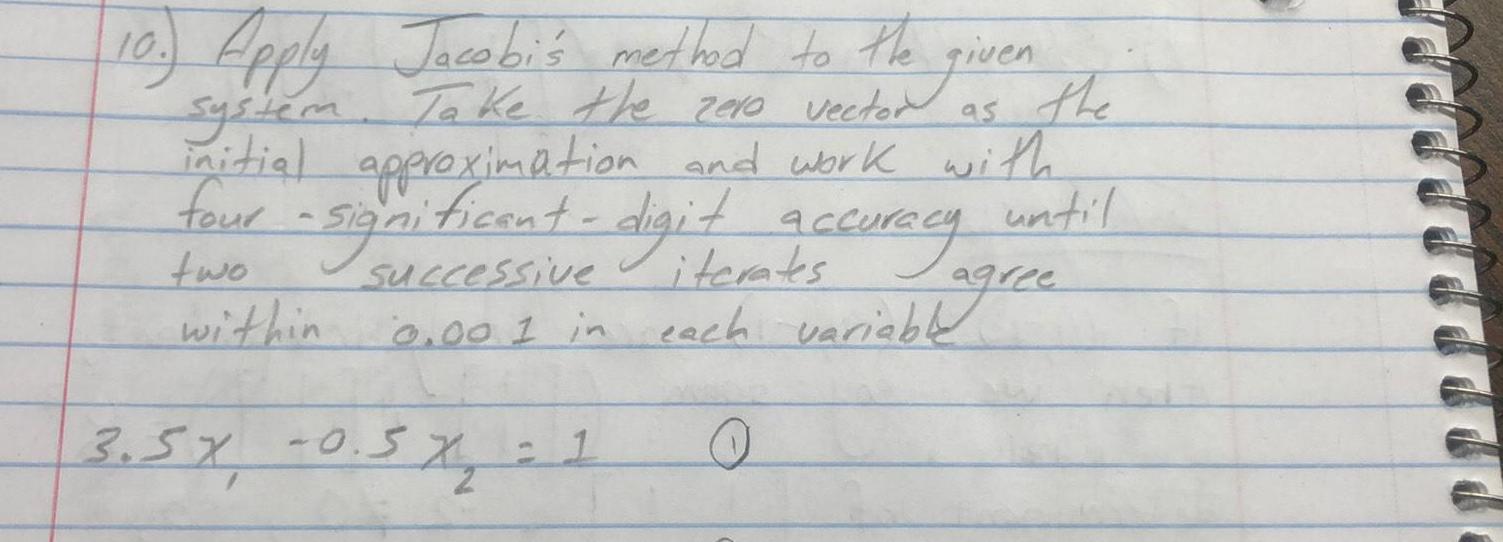 10.) Apply Jacobi's method to the given
system. Take the zero vector as the
initial approximation and work with
four-significant-digit accuracy until
two successive iterates agree
within 0.001 in each variable
3.5x₁ -0.5x₂ = 1 ①